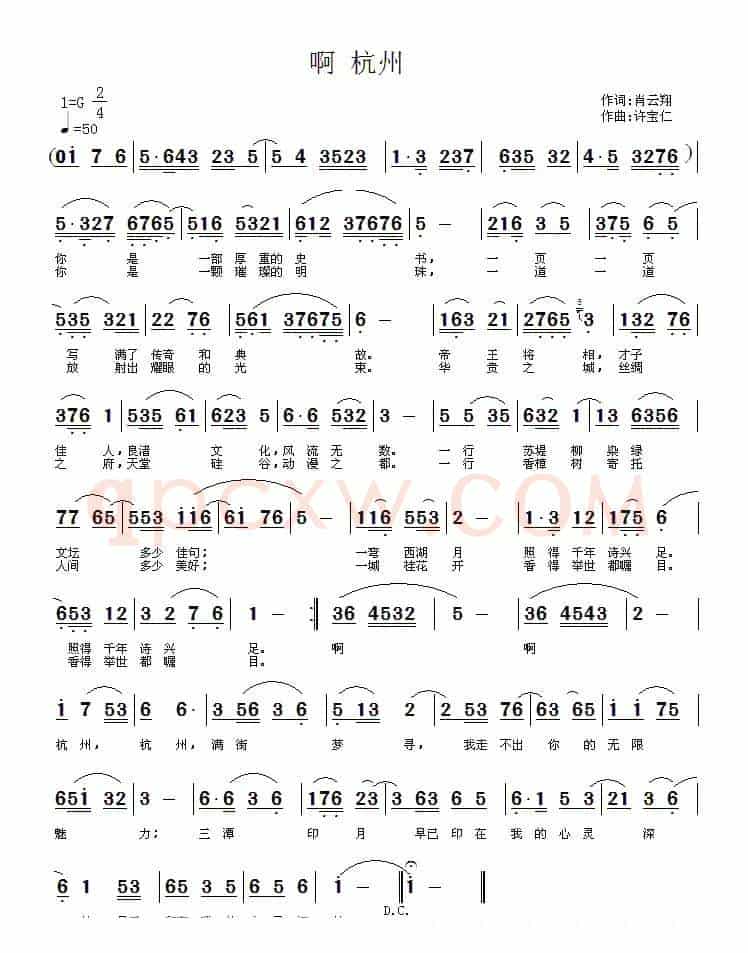 啊 杭州
1=G 2/4
作词:肖云翔
♩=50
作曲:许宝仁
(0i 7 6 | 5·643 23 5 | 5 4 3523 | 1·3 237 | 635 32 | 4·5 3276 ) |
5·327 6765 | 516 5321 | 612 37676 | 5 － | 216 3 5 | 375 6 5 |
你 是 一部 厚 重的 史 书, 一 页 一 页
你 是 一颗 璀 璨的 明 珠, 一 道 一 道
535 321 | 22 76 | 561 37675 | 6 － | 163 21 | 2765 3 | 132 76 |
写 满了 传奇 和 典 故。 帝 王 将 相, 才子
放 射出 耀眼 的 光 束。 华 贵 之 城, 丝绸
376 1 | 535 61 | 623 5 | 6·6 532 | 3 － | 5 5 35 | 632 1 | 13 6356 |
佳 人,良渚 文 化,风 流 无 数。 一行 苏堤 柳 染绿
之 府,天堂 硅 谷,动 漫 之 都。 一行 香樟 树 寄托
qpcxw.COM
77 65 | 553 ii6 | 6i 76 | 5 － | 116 553 | 2 － | 1·3 22 | 175 6 |
文坛 多少 佳句; 一弯 西湖 月 照得 千年 诗兴 足。
人间 多少 美好; 一城 桂花 开 香得 举世 都瞩 目。
653 12 | 3 2 7 6 | 1 － :‖ 36 4532 | 5 － | 36 4543 | 2 － |
照得 千年 诗 兴 足。 啊 啊
香得 举世 都 瞩 目。
i 7 53 | 6 6· | 36 3 6 | 5 13 | 2 2 | 2 53 76 | 63 65 | 35 75 |
杭 州, 杭 州, 满 街 梦 寻, 我走 不出 你 的 无限
651 32 | 3 － | 6·6 3 6 | 176 23 | 3 63 6 | 6·1 5 3 | 21 6 |
魅 力; 三 潭 印 月 早已 印在 我 的 心 灵 深
6 1 53 | 65 3 5 6 | i － ‖ i － ‖
D.C.